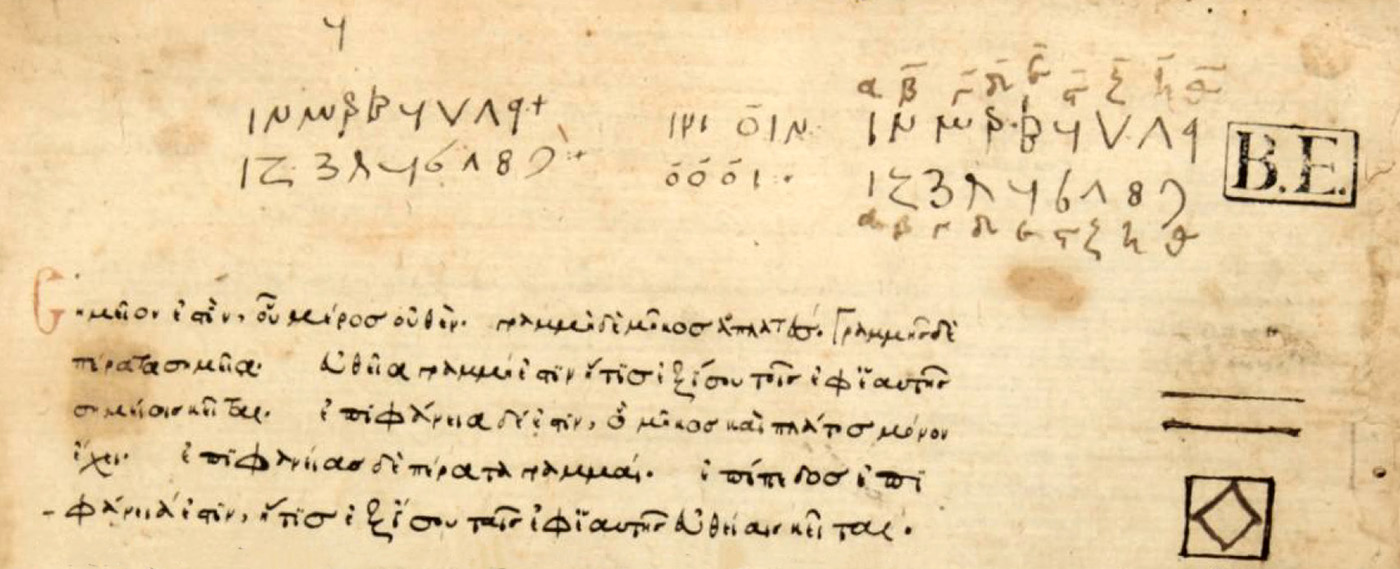 α̅ β̅ γ̅ δ̅ ε̅ ϛ̅ ζ̅ η̅ θ̅
١ ٢ ٣ ۴ ۵ ۶ ٧ ٨ ٩
1 2 3 4 5 6 7 8 9
α β γ δ ε ϛ ζ η θ
B.E.
Σημεῖον ἐστὶν, οὗ μέρος οὐθέν. γραμμὴ δὲ μῆκος ἀπλατές. Γραμμῆς δὲ
πέρατα σημεῖα. εὐθεῖα γραμμή ἐστιν ἥτις ἐξ ἴσου τοῖς ἐφ' ἑαυτῆς
σημείοις κεῖται. ἐπιφάνεια δέ ἐστιν, ὃ μῆκος καὶ πλάτος μόνον
ἔχει. ἐπιφανείας δὲ πέρατα γραμμαί. ἐπίπεδος ἐπι
-φάνειά ἐστιν, ἥτις ἐξ ἴσου ταῖς ἐφ' ἑαυτῆς εὐθείαις κεῖται.